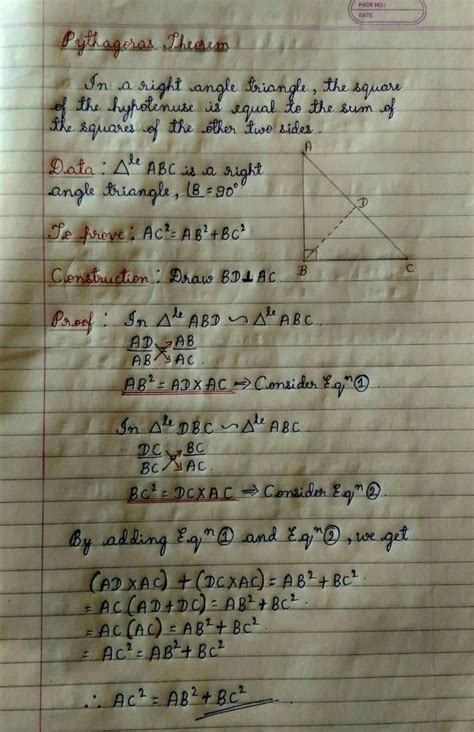 PAGE NO.:
DATE
Pythagoras Theorem
In a right angle triangle, the square
of the hypotenuse is equal to the sum of
the squares of the other two sides.
Data : Δˡᵉ ABC is a right
angle triangle, ∠B = 90°
To prove : AC² = AB² + BC²
Construction : Draw BD ⊥ AC
A
D
B
C
Proof : In Δˡᵉ ABD ∽ Δˡᵉ ABC.
AD/AB = AB/AC.
AB² = AD × AC ⇒ Consider Eqⁿ ①
In Δˡᵉ DBC ∽ Δˡᵉ ABC.
DC/BC = BC/AC.
BC² = DC × AC ⇒ Consider Eqⁿ ②.
By adding Eqⁿ ① and Eqⁿ ②, we get
(AD × AC) + (DC × AC) = AB² + BC².
= AC (AD + DC) = AB² + BC².
= AC (AC) = AB² + BC².
= AC² = AB² + BC²
∴ AC² = AB² + BC²